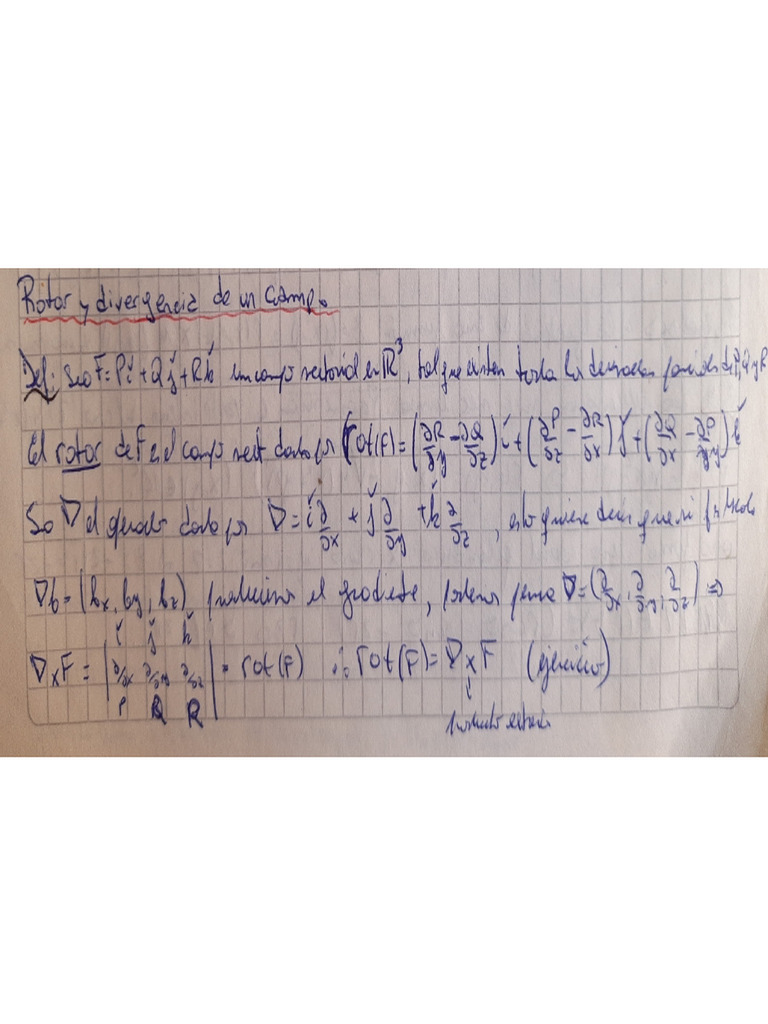 Rotor y divergencia de un campo
Def: Sea F = Pi + Qj + Rk un campo vectorial en ℝ³, tal que existen todas las derivadas parciales de P, Q y R
El rotor de F es el campo vect dado por rot(F) = (∂R/∂y - ∂Q/∂z) i + (∂P/∂z - ∂R/∂x) j + (∂Q/∂x - ∂P/∂y) k
Sea ∇ el operador dado por ∇ = i ∂/∂x + j ∂/∂y + k ∂/∂z , esto quiere decir que si
∇b = (bx, by, bz) el gradiente, podemos ∇ = (∂/∂x, ∂/∂y, ∂/∂z) ⇒
∇xF = | i j k ; ∂/∂x ∂/∂y ∂/∂z ; P Q R | = rot(F) ∴ rot(F) = ∇xF (ejercicio)
↓
producto